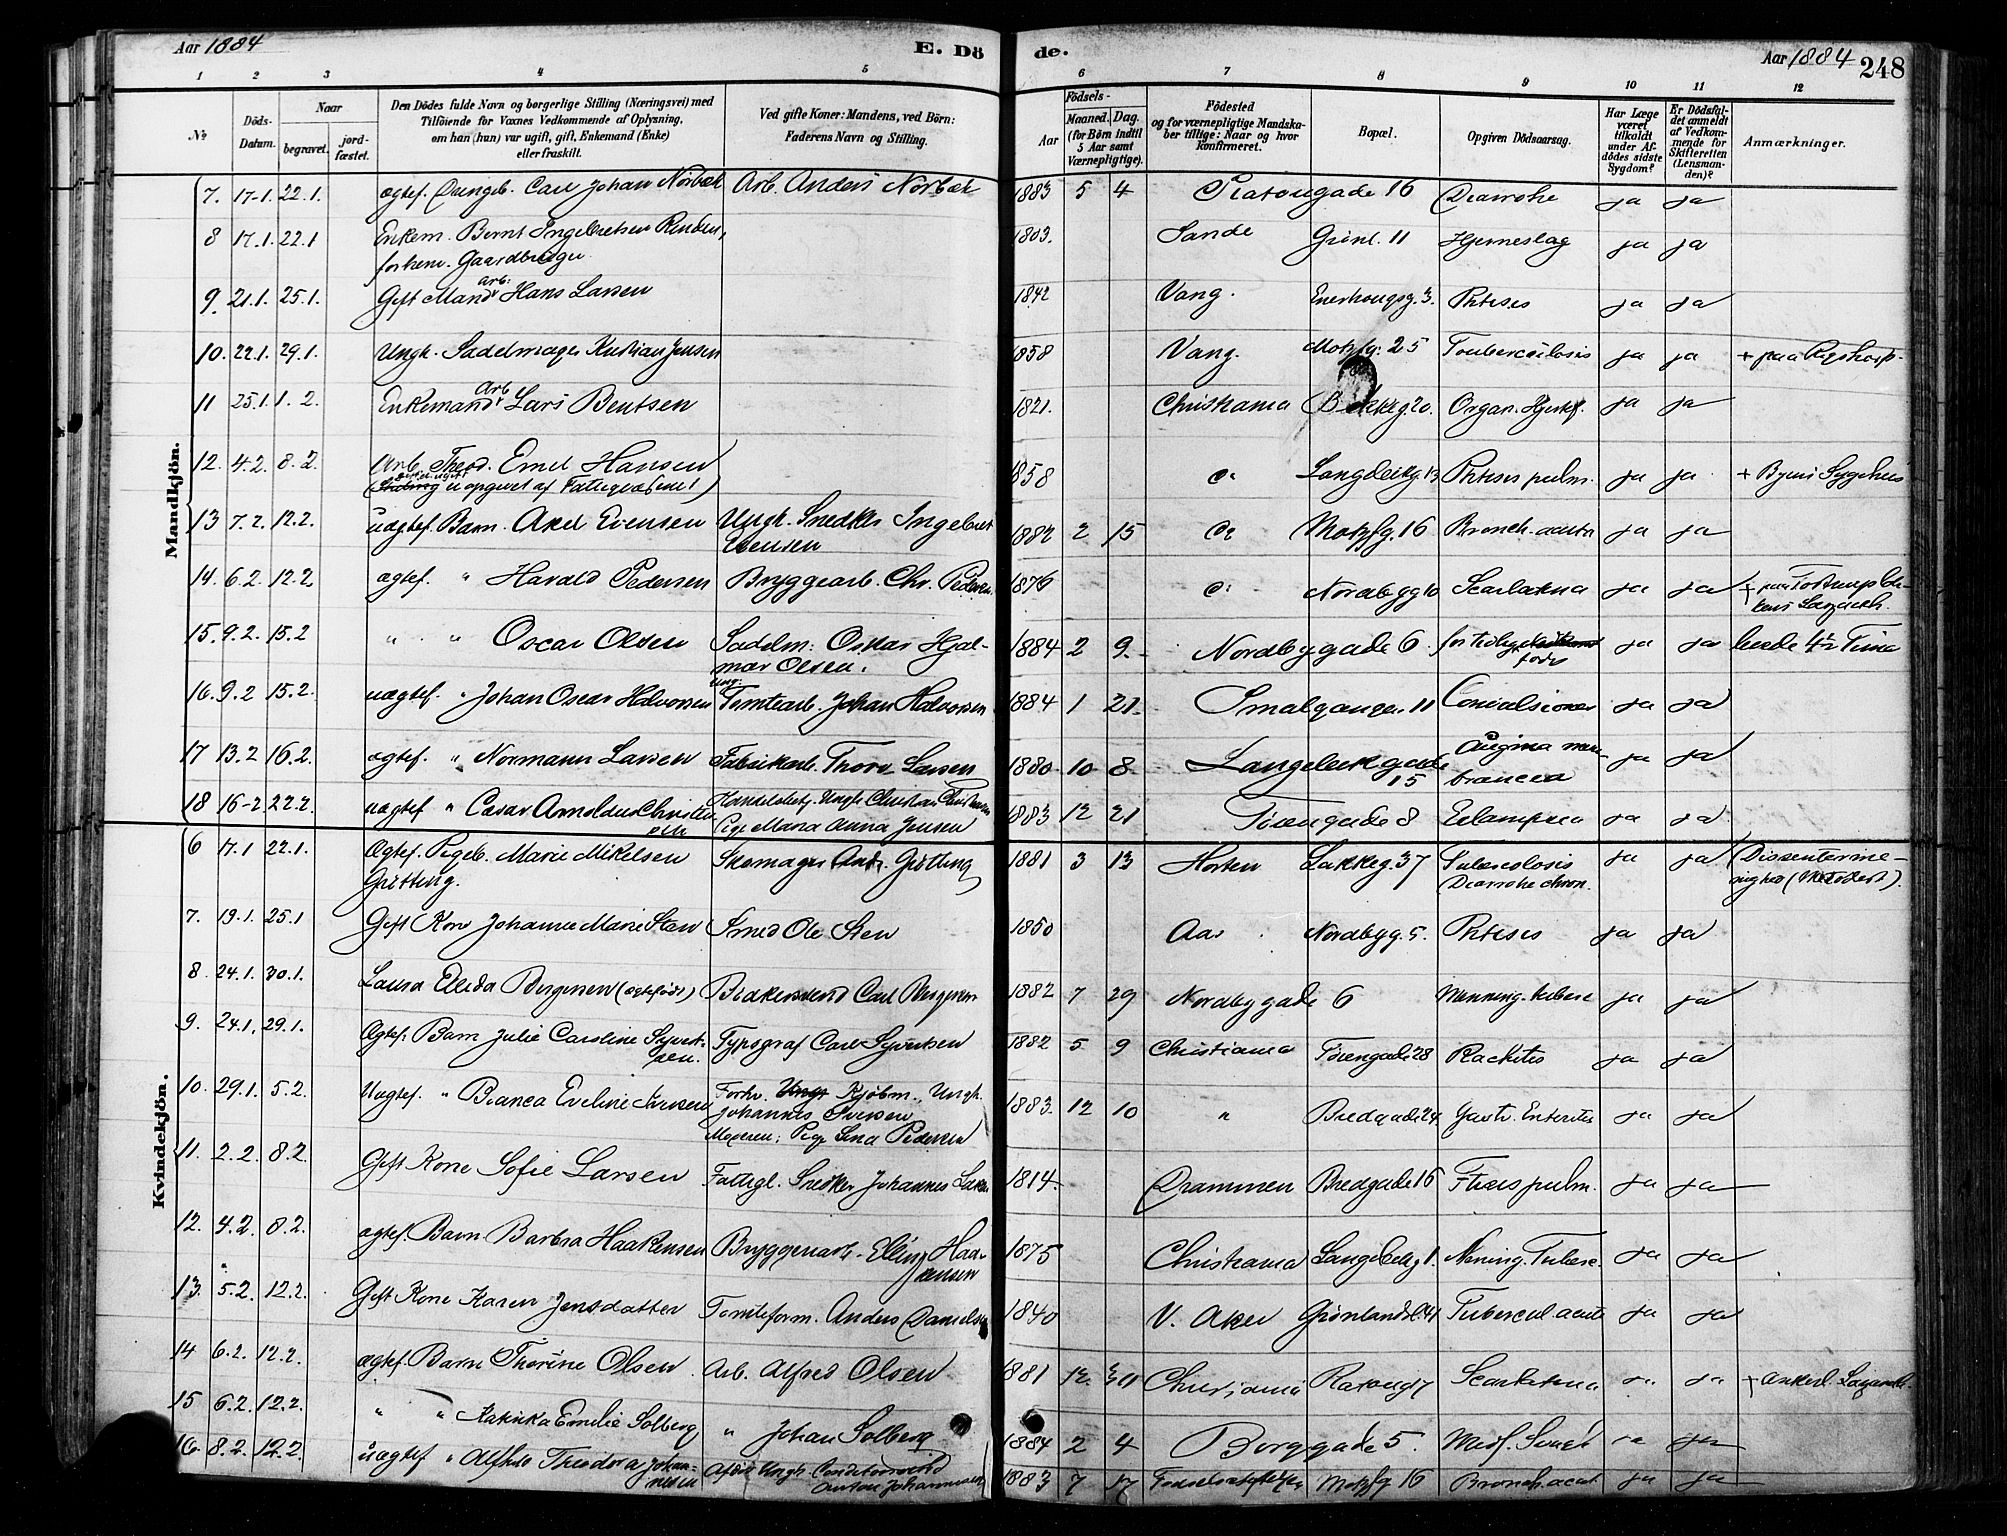 Aar 1884
E. Dö
de.
Aar 1884
248
1 2 3 4 5 6 7 8 9 10 11 12
No
Döds-
Datum.
Naar
begravet.
jord-
fæstet.
Den Dödes fulde Navn og borgerlige Stilling (Næringsvei) med
Tilföiende for Voxnes Vedkommende af Oplysning,
om han (hun) var ugift, gift, Enkemand (Enke)
eller fraskilt.
Ved gifte Koner: Mandens, ved Börn:
Faderens Navn og Stilling.
Födsels-
Aar
Maaned. Dag.
(for Börn indtil
5 Aar samt
Værnepligtige).
Födested
og for værnepligtige Mandska-
ber tillige: Naar og hvor
konfirmeret.
Bopæl.
Opgiven Dödsaarsag.
Har Læge
været
tilkaldt
under Af-
dödes sidste
Sygdom?
Er Dödsfal-
det anmeldt
af Vedkom-
mende for
Skifteretten
(Lensman-
den)?
Anmærkninger.
Mandkjön.
7. 17-1. 22.1. ægtef. Drengeb. Carl Johan Norbæk Arb. Anders Norbæk 1883 5 4 Platougade 16 Diarrohe ja ja
8 17.1. 22.1 Enkem. Bernt Ingebretsen Rinden, 1803. Sande Grønl. 11 Hjerneslag ja ja
forhenv. Gaardbruger
9. 21.1. 25.1. Gift Mand arb. Hans Larsen 1842 Vang. Enerhougsg. 3. Phtisis ja ja
10. 22.1. 29.1. Ungk. Sadelmager Kristian Jensen 1858 Vang. Motzfg. 25 Touberculosis ja ja + paa Rigshosp.
11 25.1. 1.2. Enkemand Arb Lars Bentsen 1821. Christiania Bakkeg 20. Organ. Hjertef. ja ja
12. 4.2. 8.2. Arb. Theod. Emil Hansen 1858 do Langleikg 13 Phtisis pulm. ja ja + Byens Sygehus
er opgivet af Fattigvæsenet)
13 7.2. 12.2. uægtef. Barn. Axel Evensen Ungk. Snedker Ingebret 1882 2 15 do Motzfg. 16 Bronch. acuta ja ja
Evensen
14. 6.2. 12.2 ægtef. " Harald Pedersen Bryggearb. Chr. Pedersen 1876 do Nordbygg 10 Scarlatina ja ja + paa
15. 9.2. 15.2 " " Oscar Olsen Sadelm: Oskar Hjal- 1884 2 9. Nordbygade 6 for tidlig ja ja levede 4½ Time
mar Olsen. født
16. 9.2 15.2. uægtef. " Johan Oscar Halvorsen ung. Tomtearb. Johan Halvorsen 1884 1 21. Smalgangen 11 Convulsioner ja ja
17 13.2 16.2. ægtef. " Normann Larsen Fabrikarb. Thorv. Larsen 1880. 10 8. Langleikgade Angina mem- ja ja
15 branacea
18 16-2 22.2. uægtef " Cæsar Arnoldus Christen Handelsbetj. Ungk. Christian 1883 12 21 Töiengade 8 Eclampsia ja ja
sen Pige Maria Anna Jensen
Kvindekjön.
6 17.1 22.1. Ægtef. Pigeb. Marie Mikelsen Skomager Grötting 1881 3 13 Horten Lakkeg. 37 Tuberculosis ja ja (Dissentermenighed
Grötting. Diarrohe chron.
7. 19.1. 25.1 Gift Kone Johanne Marie Sten Smed Ole Sten 1850 Aas Nordbyg. 5. Phtisis ja ja
8 24.1. 30.1. Laura Elida Bergersen (ægtefødt) Carl Bergersen 1882 7 29 Nordbygade 6 Menning. tuberc ja ja
9. 24.1. 29.1. Ægtef. Barn Julie Caroline Syvert- Typograf Carl Syvertsen 1882 5 9 Christiania Töiengade 28 Rachitis ja ja
sen.
10. 29.1. 5.2. Uægtef. " Bianca Eveline Iversen Forhv. Kjöbm., Ungk. 1883. 12 10 " Bredgade 24 Gastr. Enteritis ja ja
Johannes Iversen
Moderen: Pige Lina Pedersen
11. 2.2. 8.2. Gift Kone Sofie Larsen Fattigl. Snedker Johannes Larsen 1814. Drammen Bredgade 16 Ftisis pulm. ja ja
12. 4.2. 8.2. ægtef. Barn Barbra Haakensen Bryggeriarb. Elling Haa- 1875 Christiania Langleikg 1. Mening. Tuberc. ja ja
kensen
13. 5.2. 12.2. Gift Kone Karen Jensdatter Tomteform. Anders Danielsen 1840 V. Aker Grönlandsl. 41 Tubercul. acuta ja ja
14 6.2. 12.2. ægtef. Barn Thorine Olsen Arb. Alfred Olsen 1881 12. 30 Christiania Scarlatina ja ja + Ankerl. Lazareth.
15 6.2. 12.2. " " Katinka Emilie Solberg " Johan Solberg 1884 2 4 Borggade 5. Medf. Svagh ja ja
16. 8.2. 12.2. uægtef " Theodora Johan- Ungk. 1883 7 17 Motzfg 16 Bronch. acut ja ja
nesen Anton Johannesen